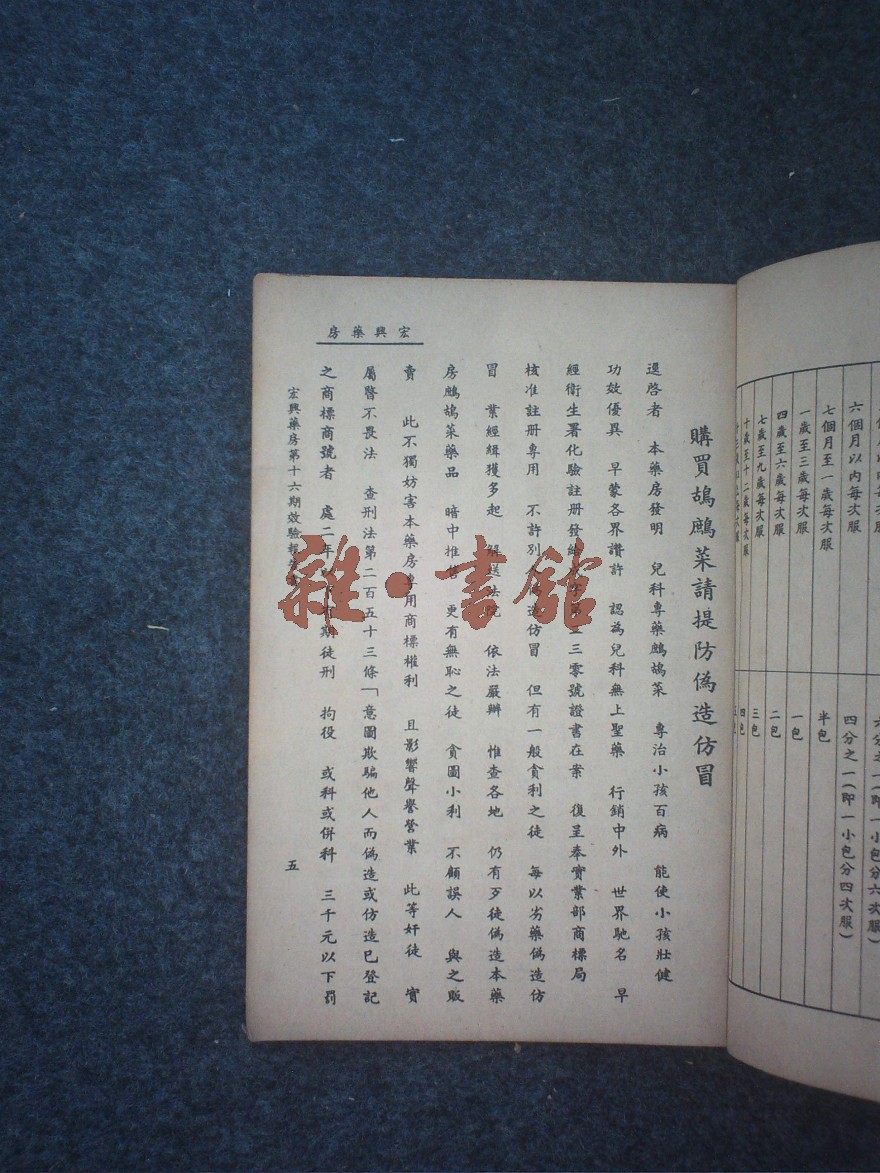 六個月以內每次服 四分之一(即一小包分四次服)
七個月至一歲每次服 半包
一歲至三歲每次服 一包
四歲至六歲每次服 二包
七歲至九歲每次服 三包
十歲至十二歲每次服 四包
宏興藥房
購買鷓鴣菜請提防偽造仿冒
逕啓者 本藥房發明 兒科專藥鷓鴣菜 專治小孩百病 能使小孩壯健
功效優異 早蒙各界讚許 認為兒科無上聖藥 行銷中外 世界馳名 早
經衛生署化驗註册發給 三零號證書在案 復呈奉實業部商標局
核准註册專用 不許別人偽造仿冒 但有一般貪利之徒 每以劣藥偽造仿
冒 業經緝獲多起 解送法院 依法嚴辦 惟查各地 仍有歹徒偽造本藥
房鷓鴣菜藥品 暗中推售 更有無恥之徒 貪圖小利 不顧誤人 與之販
賣 此不獨妨害本藥房專用商標權利 且影響聲譽營業 此等奸徒 實
屬暋不畏法 查刑法第二百五十三條「意圖欺騙他人而偽造或仿造已登記
之商標商號者 處二年 期徒刑 拘役 或科或併科 三千元以下罰
宏興藥房第十六期效驗報
五
雜·書館